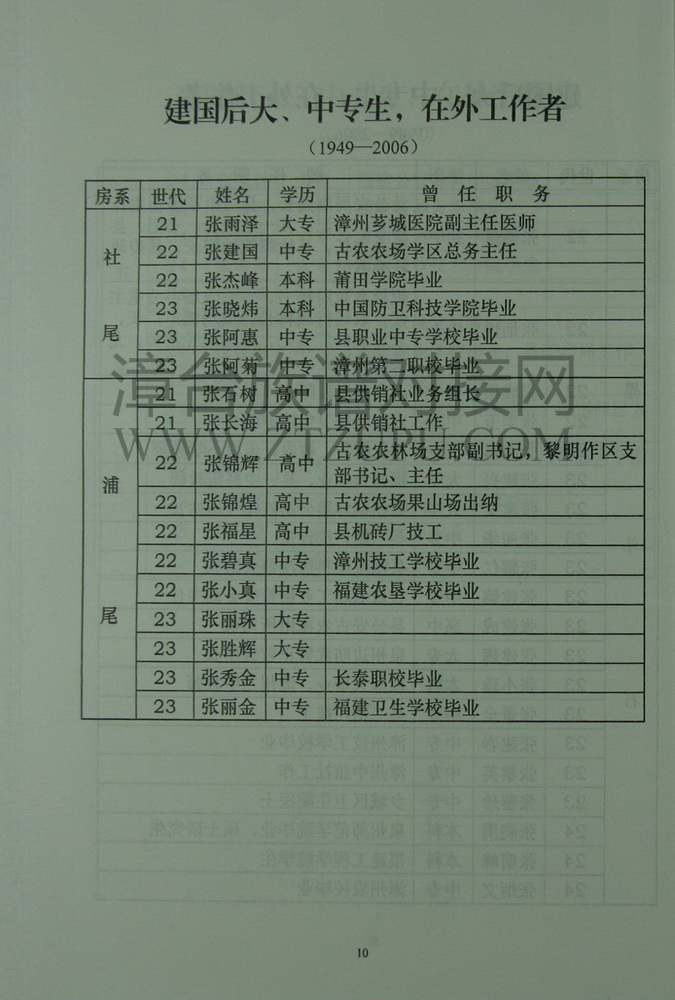 建国后大、中专生，在外工作者
（1949—2006）
房系 世代 姓名 学历 曾任职务
社尾 21 张雨泽 大专 漳州芗城医院副主任医师
22 张建国 中专 古农农场学区总务主任
22 张杰峰 本科 莆田学院毕业
23 张晓炜 本科 中国防卫科技学院毕业
23 张阿惠 中专 县职业中专学校毕业
23 张阿菊 中专 漳州第二职校毕业
浦尾 21 张石树 高中 县供销社业务组长
21 张长海 高中 县供销社工作
22 张锦辉 高中 古农农林场支部副书记，黎明作区支
部书记、主任
22 张锦煌 高中 古农农场果山场出纳
22 张福星 高中 县机砖厂技工
22 张碧真 中专 漳州技工学校毕业
22 张小真 中专 福建农垦学校毕业
23 张丽珠 大专
23 张胜辉 大专
23 张秀金 中专 长泰职校毕业
23 张丽金 中专 福建卫生学校毕业
漳台族谱对接网
WWW.ZTZUPU.COM
10